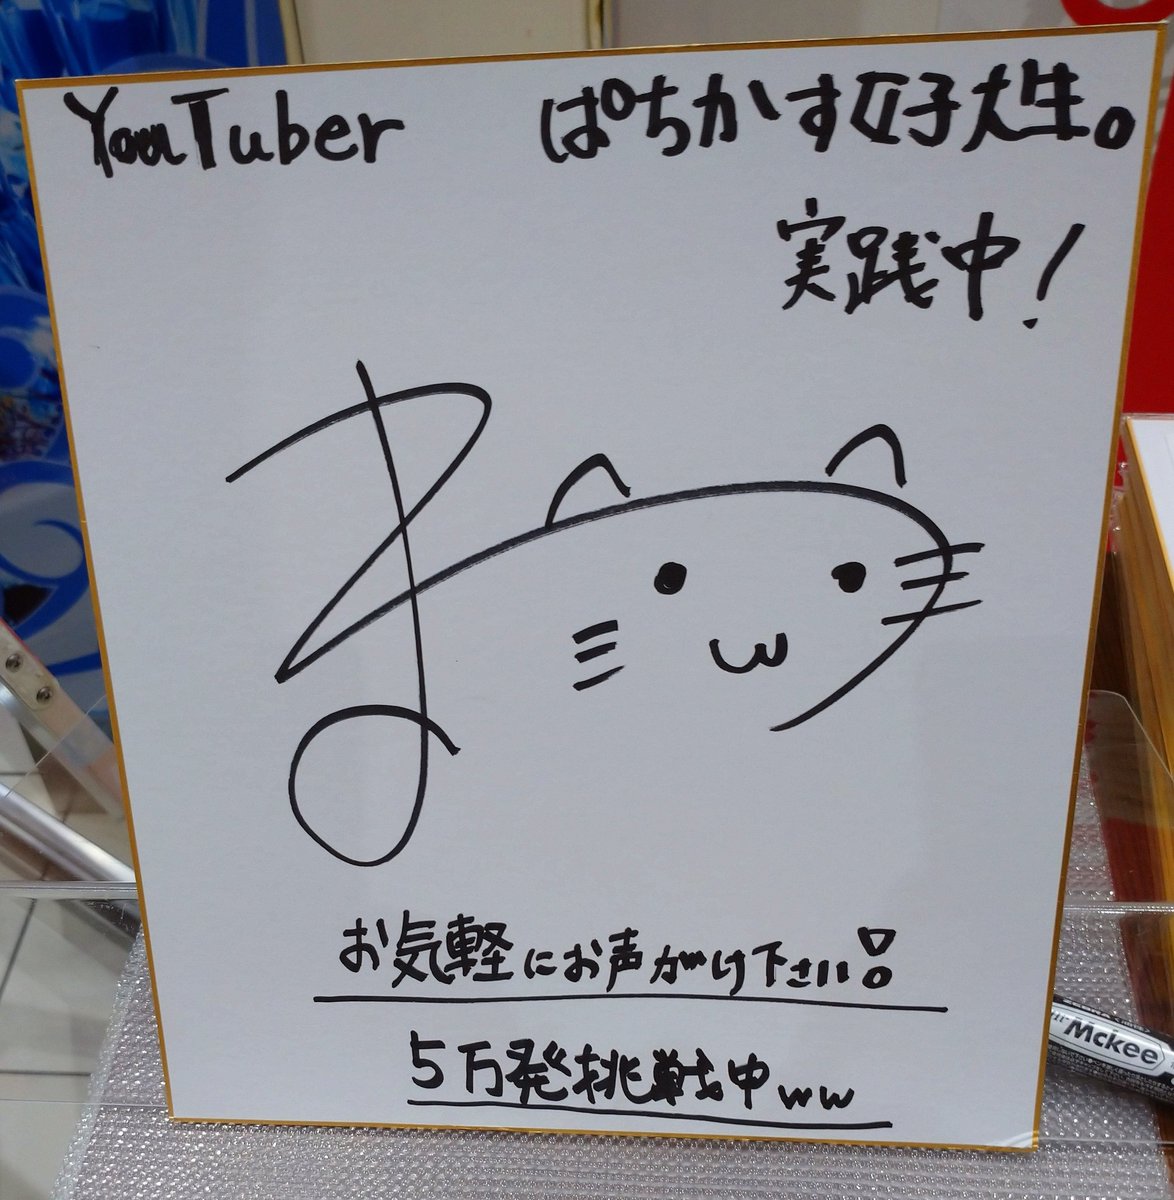 YouTuber ぱちかす女子大生。
実践中!
ま
お気軽にお声がけ下さい!
5万発挑戦中ww
Mckee